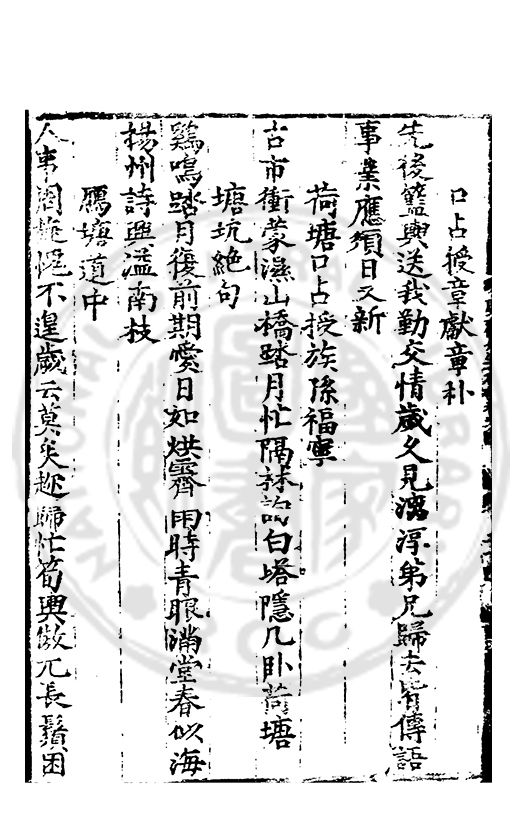 口占授章獻章朴
先後籃輿送我勤交情歲久見漓淳弟兄歸去皆傳語
事業應須日又新
荷塘口占授族孫福寧
古市衝蒙濕山橋踏月忙隔林訪白塔隱几卧荷塘
塘坑絕句
鷄鳴踏月復前期愛日如烘霽雨時青眼滿堂春似海
楊州詩興溢南枝
鴈塘道中
人事不遑歲云莫矣趣歸忙筍輿傲兀長鬚困